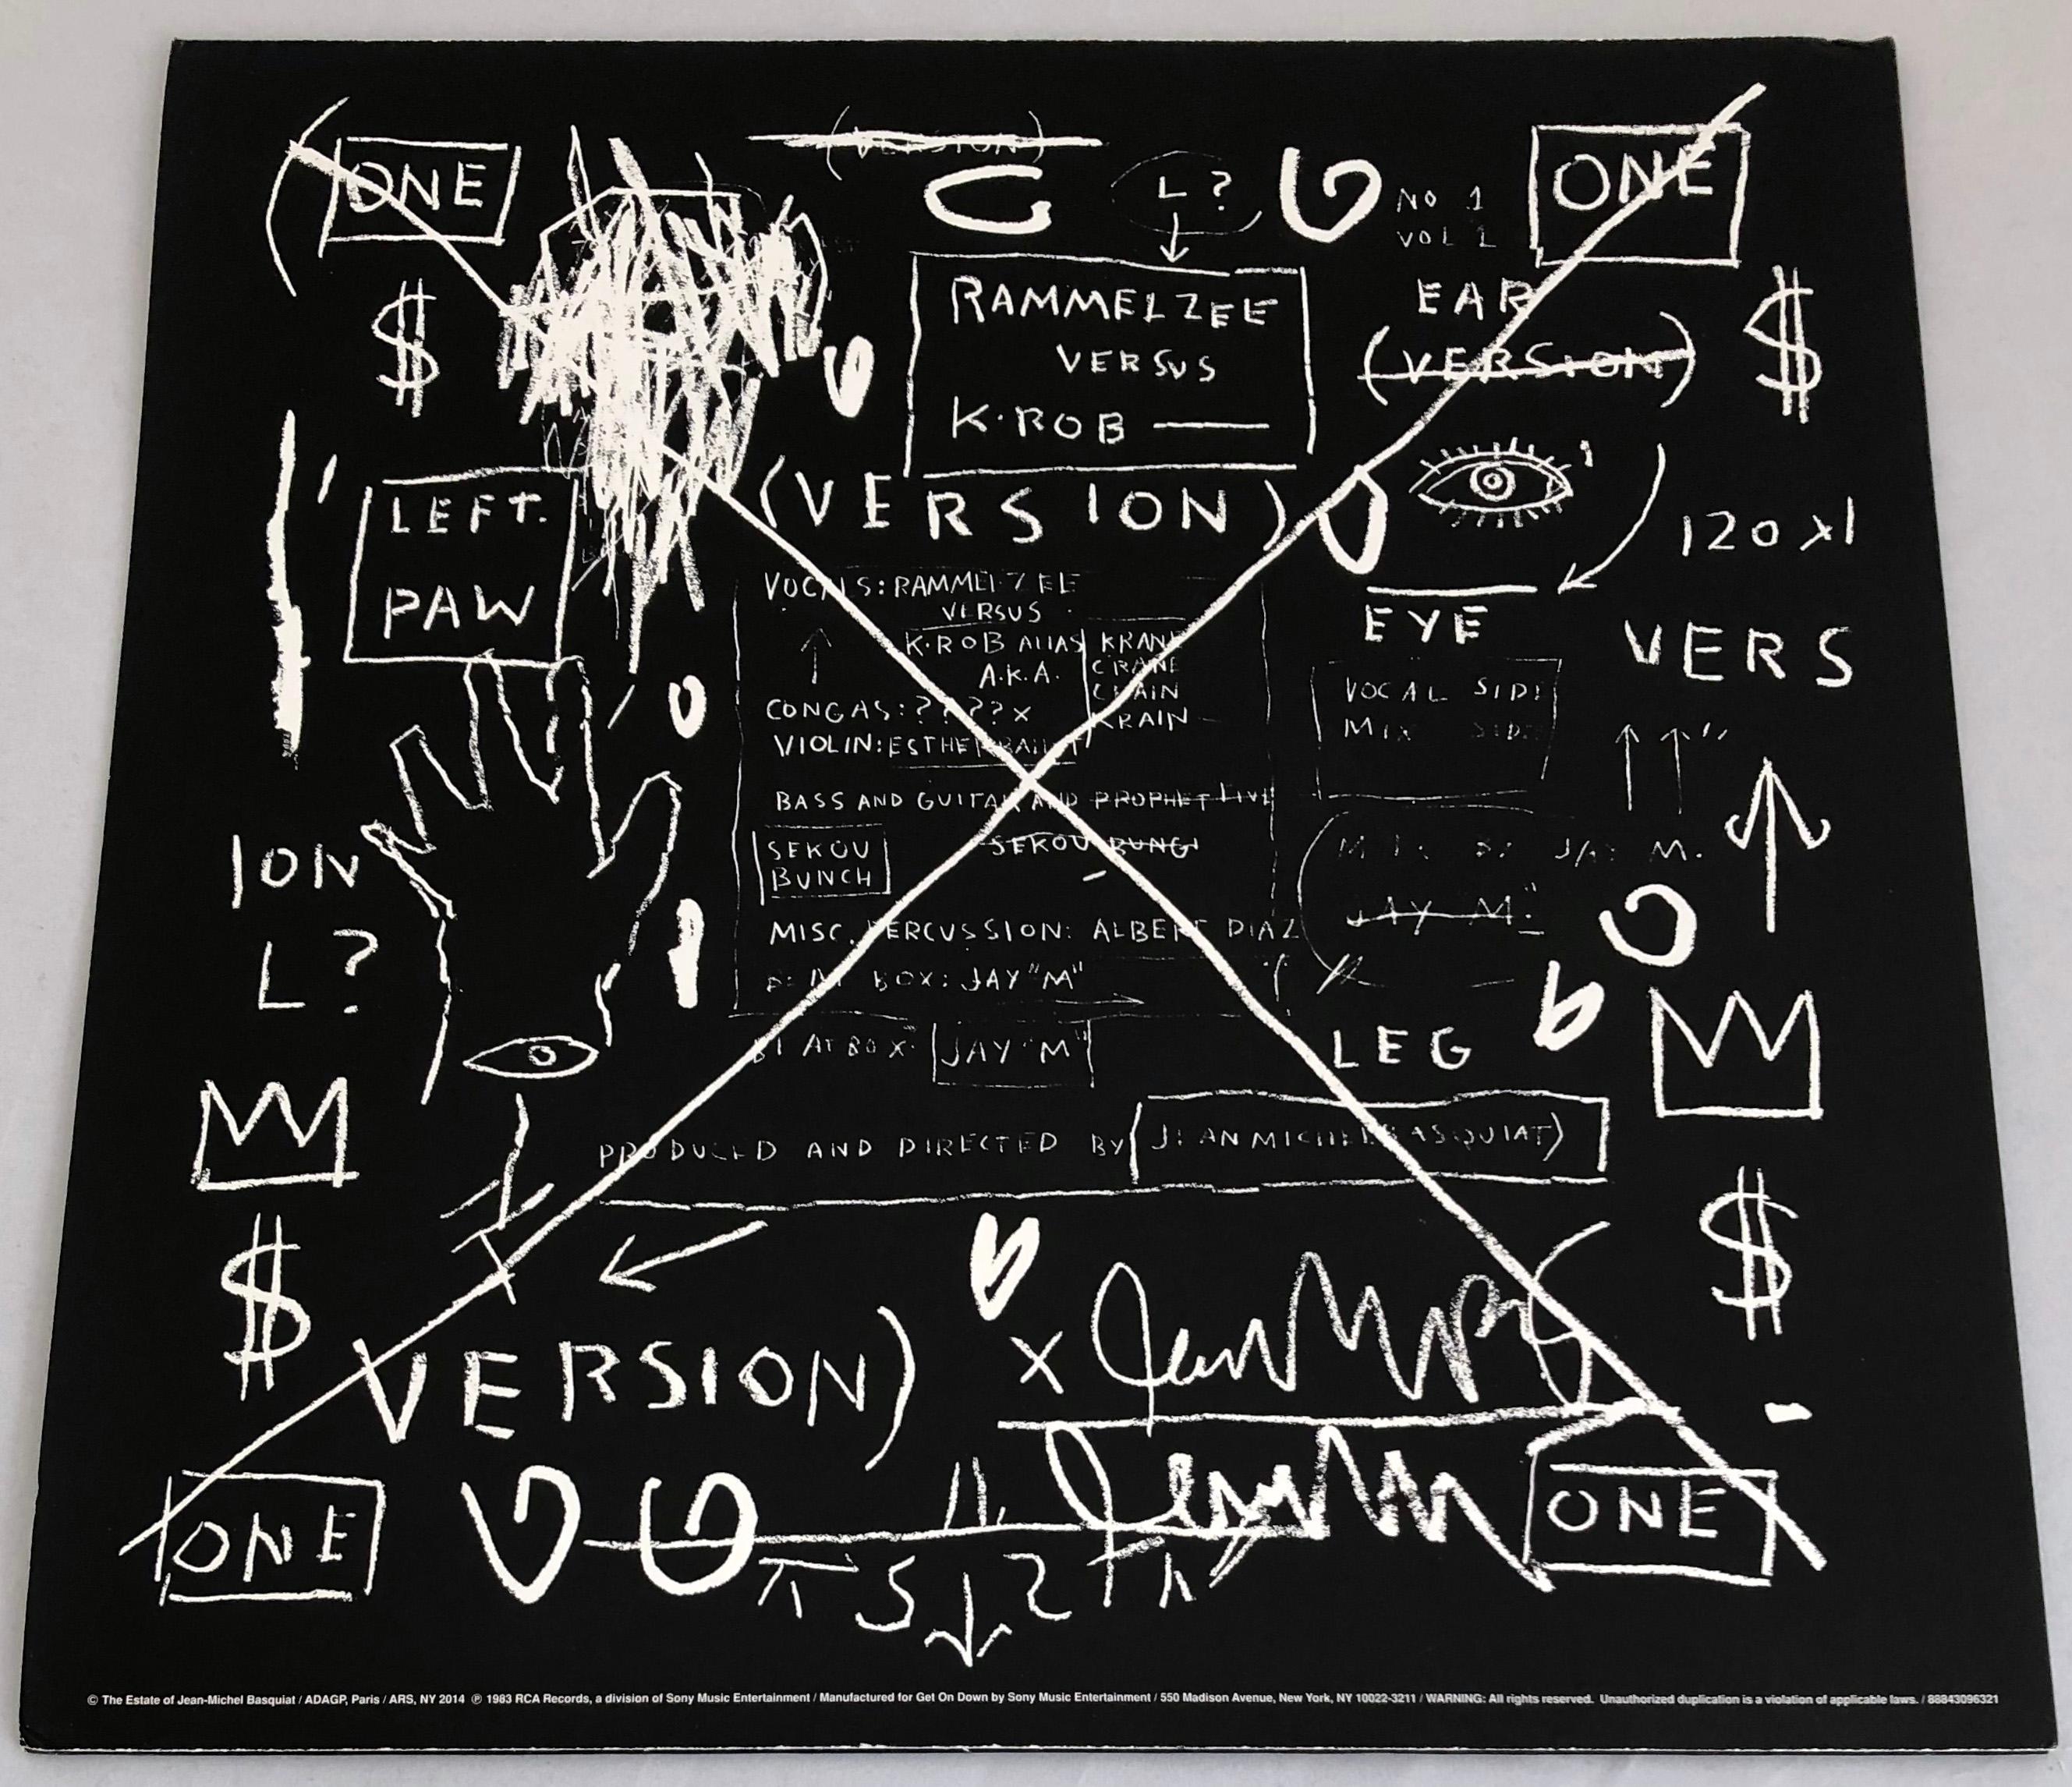 ONE
(VERSION)
L ?
NO 1
VOL 1
ONE
$
RAMMELZEE
VERSUS
K·ROB
EAR
(VERSION)
$
LEFT.
PAW
(VERSION)
120 x1
VOCALS: RAMMELZEE
VERSUS
K·ROB ALIAS
A.K.A.
KRANE
CRANE
CRAIN
KRAIN
CONGAS: ???? x
VIOLIN: ESTHER BALINT
BASS AND GUITAR AND PROPHET FIVE
SEKOU
BUNCH
SEKOU BUNGI
MISC. PERCUSSION: ALBERT DIAZ
BOX: JAY "M"
BEAT BOX: JAY "M"
EYE
VERS
VOCAL SIDE
MIX SIDE
JAY M.
JAY M.
ION
L ?
LEG
PRODUCED AND DIRECTED BY JEAN MICHEL BASQUIAT)
$
$
VERSION)
x
ONE
ONE
© The Estate of Jean-Michel Basquiat / ADAGP, Paris / ARS, NY 2014 ℗ 1983 RCA Records, a division of Sony Music Entertainment / Manufactured for Get On Down by Sony Music Entertainment / 550 Madison Avenue, New York, NY 10022-3211 / WARNING: All rights reserved. Unauthorized duplication is a violation of applicable laws. / 88843096321